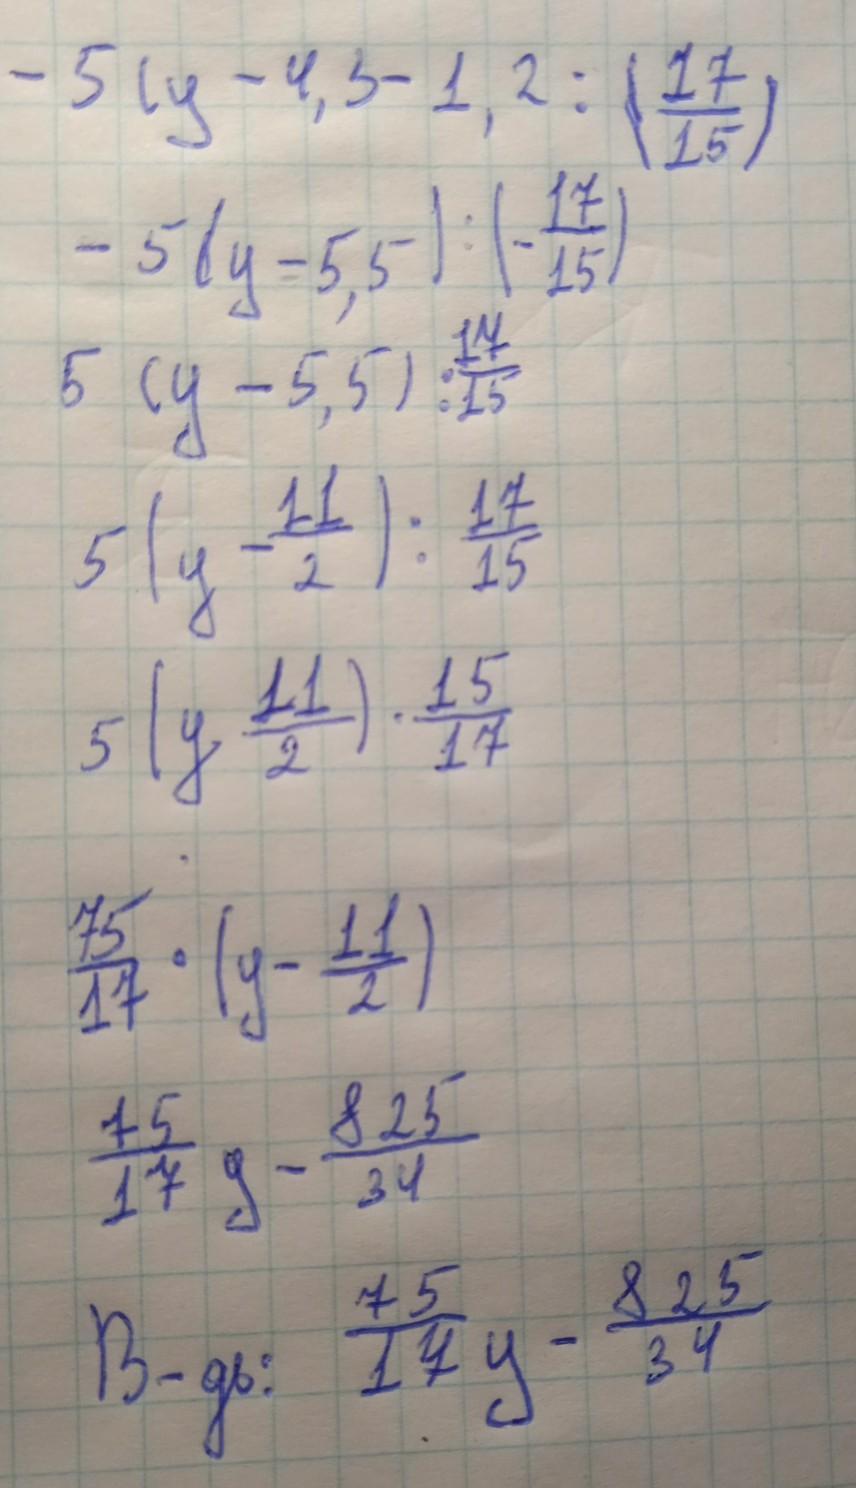 -5(y-4,3-1,2:(17/15)
-5(y-5,5):(-17/15)
5(y-5,5):17/15
5(y-11/2):17/15
5(y 11/2)·15/17
75/17·(y-11/2)
75/17y-825/34
В-дь: 75/17y-825/34